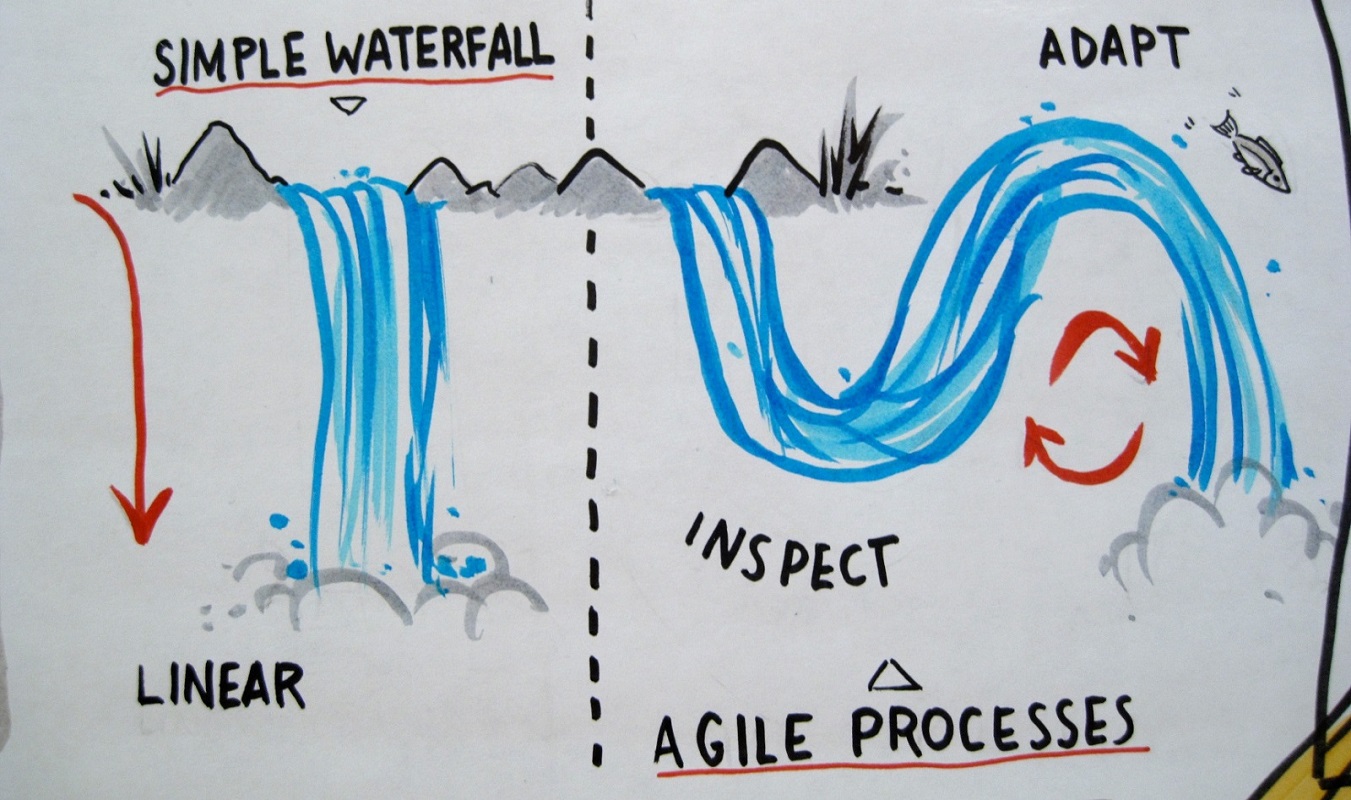 SIMPLE WATERFALL
LINEAR
ADAPT
INSPECT
AGILE PROCESSES